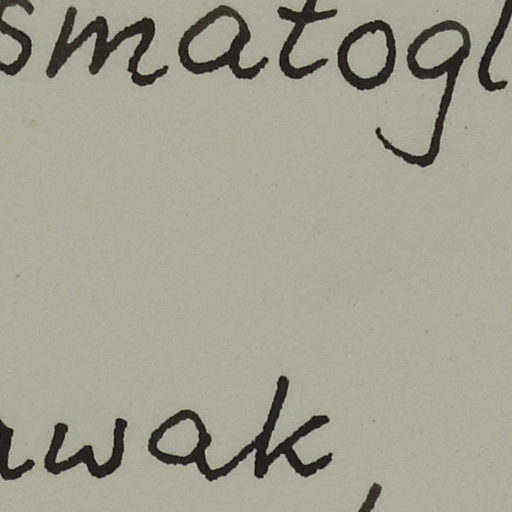 smatogl
awak,